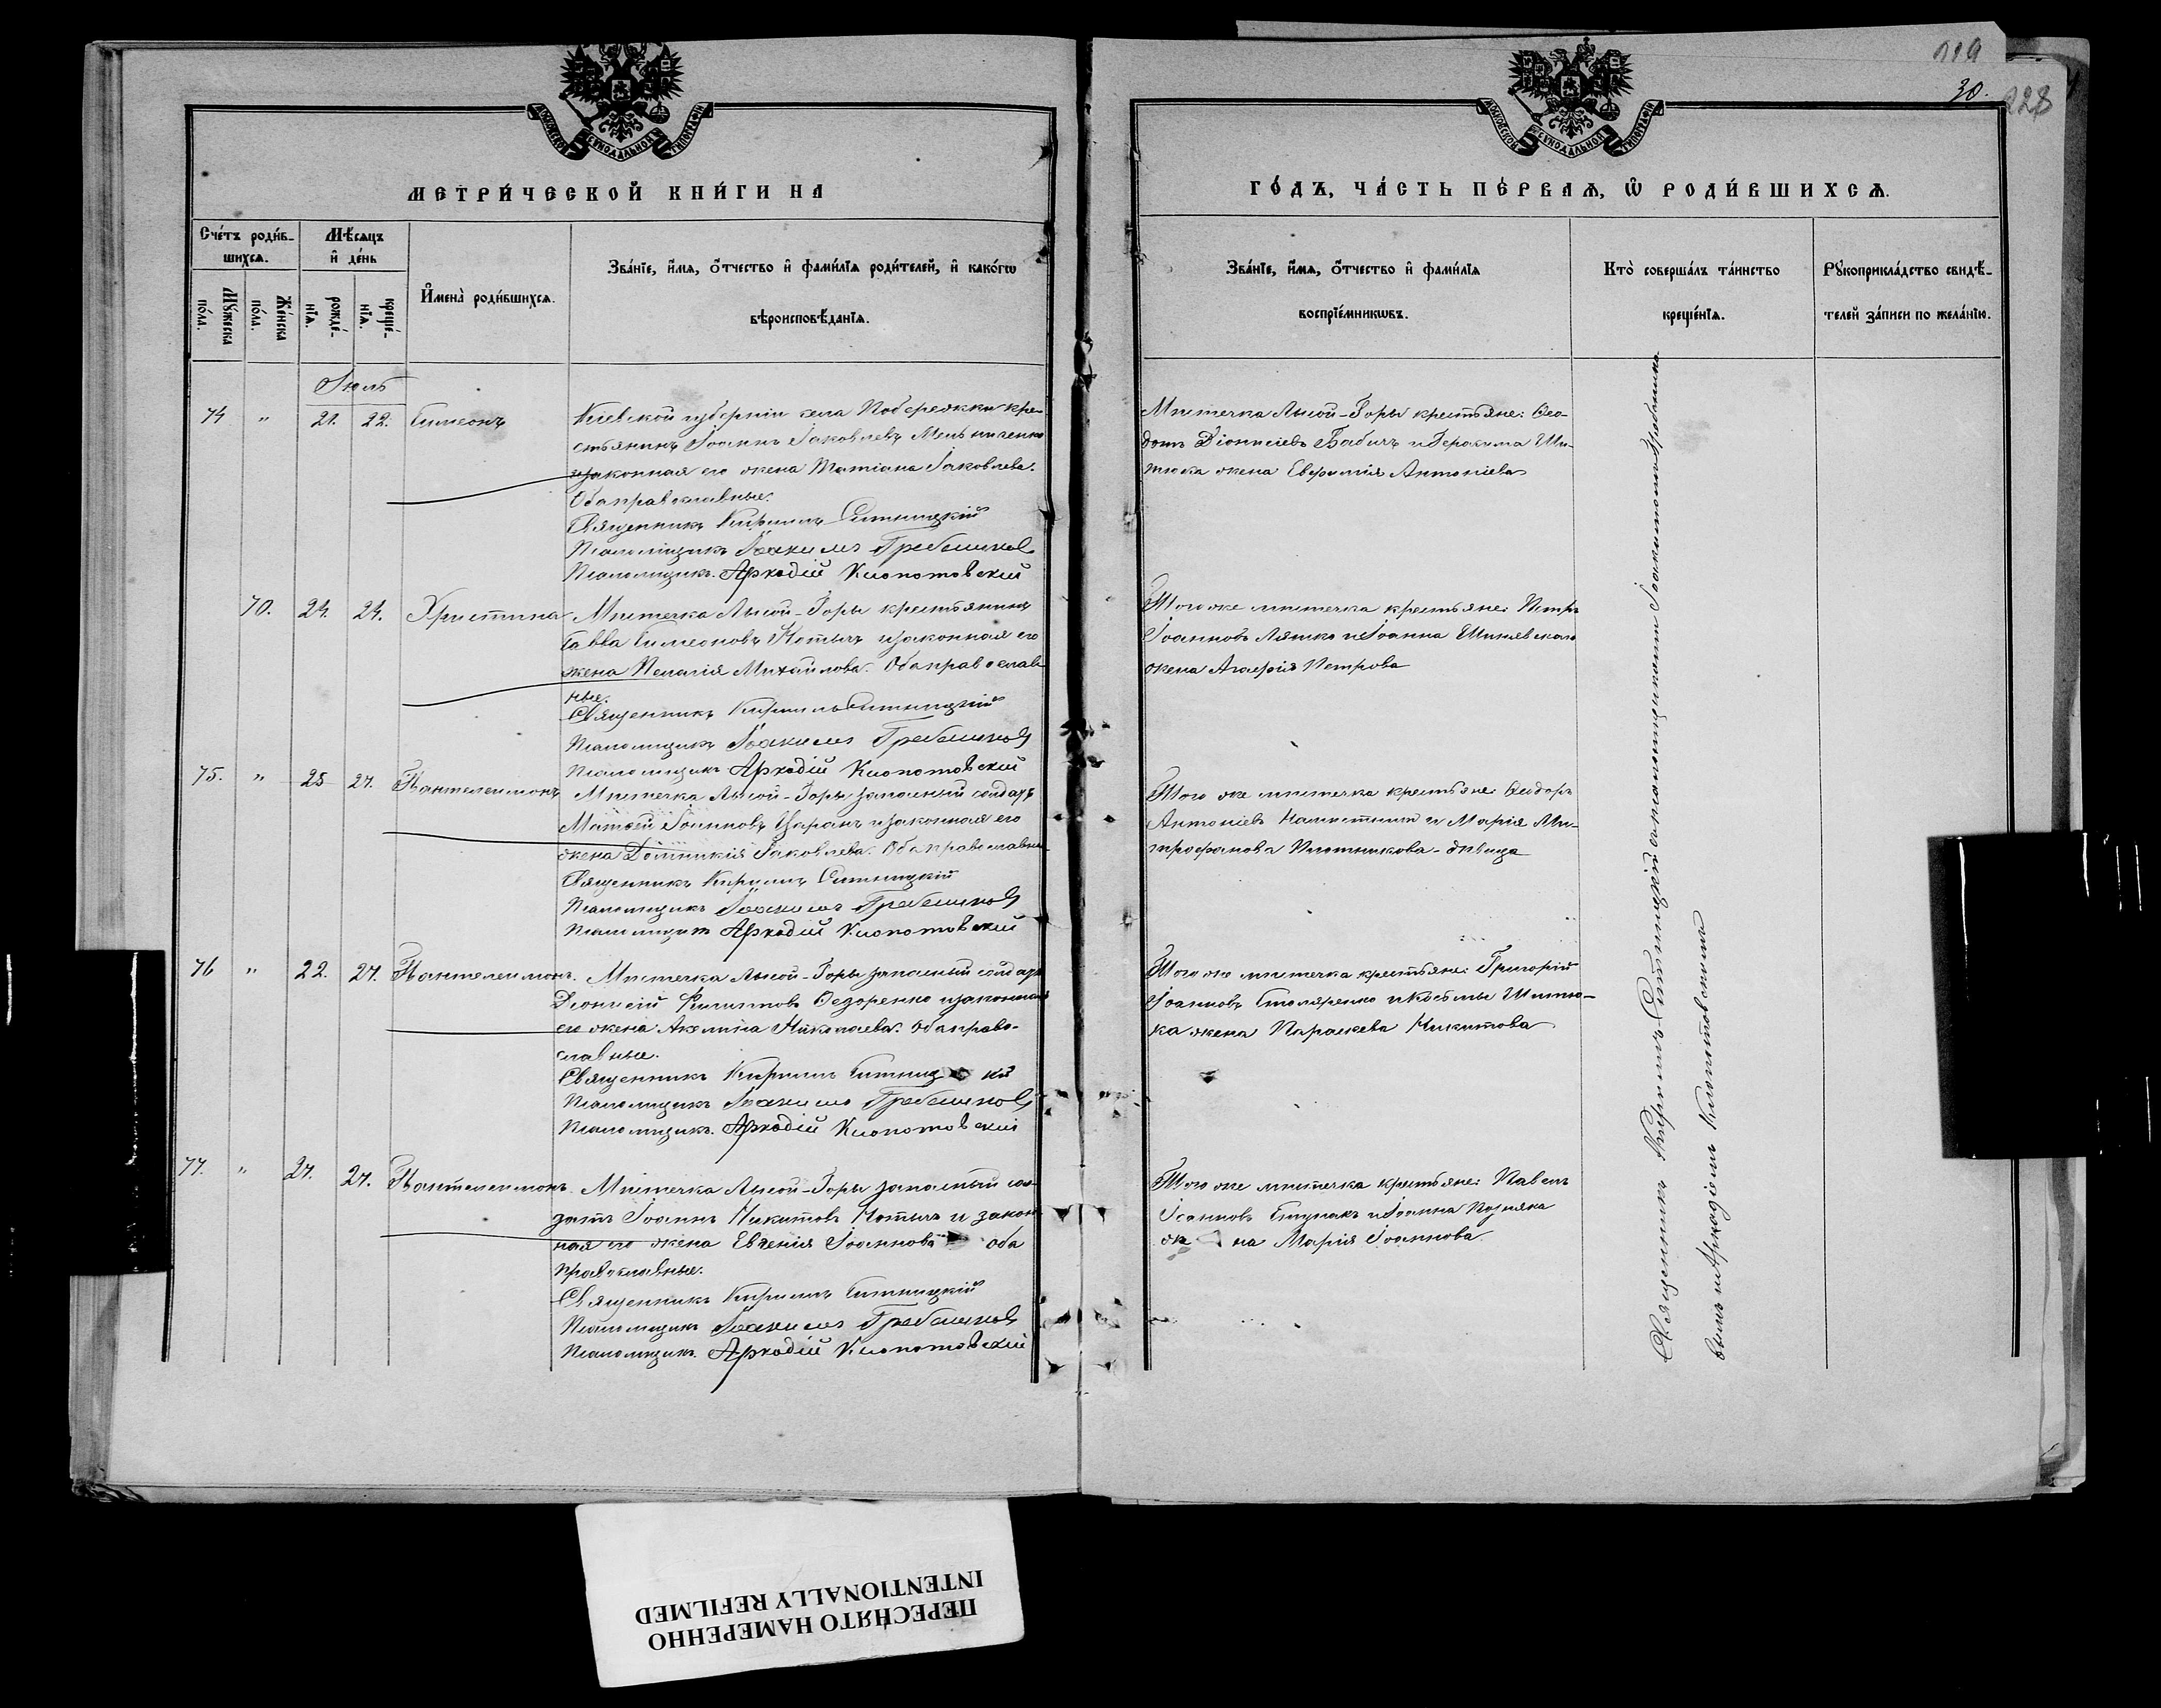 119
30.
228
МОСКОВСКОЙ СѴНОДАЛЬНОЙ ТИПОГРАФІИ
МЕТРИ́ЧЕСКОЙ КНИ́ГИ НА
Сче́тъ роди́в-
шихсѧ.
Мѣ́сѧцъ
и҆ де́нь
Мꙋ́жеска
по́ла.
Же́нска
по́ла.
рожде́-
нїѧ.
креще́-
нїѧ.
И҆мена̀ роди́вшихсѧ.
Зва́нїе, и҆́мѧ, ѻ҆́тчество и҆ фами́лїѧ роди́телей, и҆ како́гѡ
вѣроисповѣ́данїѧ.
Іюль
74 " 21. 22. Симеонъ
Киевской губерніи села Побережки кре-
стьянинъ Іоаннъ Іаковлевъ Мельниченко
и законная его жена Татіана Іаковлева.
Оба православные.
Священникъ Кириллъ Ситницкій
Псаломщикъ Іоакимъ Гребениковъ
Псаломщикъ Аркадій Клопотовскій
70. 24. 24. Христина
Мѣстечка Лысой-Горы крестьянинъ
Савва Симеоновъ Котыкъ и законная его
жена Пелагія Михайлова. Оба православ-
ные.
Священникъ Кириллъ Ситницкій
Псаломщикъ Іоакимъ Гребениковъ
Псаломщикъ Аркадій Клопотовскій
75. " 25 27. Пантелеимонъ
Мѣстечка Лысой-Горы запасный солдатъ
Матѳей Іоанновъ Царанъ и законная его
жена Домникія Іаковлева. Оба православны-
Священникъ Кириллъ Ситницкій
Псаломщикъ Іоакимъ Гребениковъ
Псаломщикъ Аркадій Клопотовскій
76 " 22. 27. Пантелеимонъ.
Мѣстечка Лысой-Горы запасный солдатъ
Діонисій Филипповъ Ѳедоренко и законная
его жена Акилина Николаева. Оба право-
славные.
Священникъ Кириллъ Ситницкій
Псаломщикъ Іоакимъ Гребениковъ
Псаломщикъ Аркадій Клопотовскій
77. " 27. 27. Пантелеимонъ
Мѣстечка Лысой-Горы запасный сол-
датъ Іоаннъ Никитовъ Котыкъ и закон-
ная его жена Евгенія Іоаннова оба
православные.
Священникъ Кириллъ Ситницкій
Псаломщикъ Іоакимъ Гребениковъ
Псаломщикъ Аркадій Клопотовскій
МОСКОВСКОЙ СѴНОДАЛЬНОЙ ТИПОГРАФІИ
ГО́ДЪ, ЧА́СТЬ ПЕ́РВАѦ, Ѽ РОДИ́ВШИХСѦ.
Зва́нїе, и҆́мѧ, ѻ҆́тчество и҆ фами́лїѧ
воспрїе́мникѡвъ.
Кто̀ соверша́лъ та́инство
креще́нїѧ.
Рꙋкоприкла́дство свидѣ́-
телей за́писи по жела́нїю.
Мѣстечка Лысой-Горы крестьяне: Ѳео-
дотъ Діонисіевъ Бабичъ и Герасима Ши-
тюка жена Евфимія Антоніева
Того же мѣстечка крестьяне: Петръ
Іоанновъ Ляшко и Іоанна Шипаевскаго
жена Агафія Петрова
Того же мѣстечка крестьяне: Ѳеодоръ
Антоніевъ Намѣстникъ и Марія Ми-
трофанова Плотникова - дѣвица
Того же мѣстечка крестьяне: Григорій
Іоанновъ Столяренко и Космы Шитю-
ка жена Параскева Никитова
Того же мѣстечка крестьяне: Павелъ
Іоанновъ Ступакъ и Іоанна Позняка
жена Марія Іоаннова
Священникъ Кириллъ Ситницкій съ псаломщиками Іоакимомъ Гребенико-
вымъ и Аркадіемъ Клопотовскимъ
ПЕРЕСНЯТО НАМЕРЕННО
INTENTIONALLY REFILMED